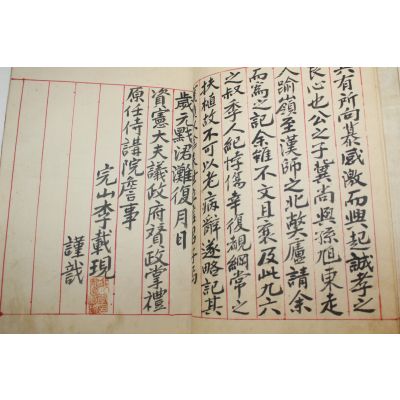 有所向慕感激而興起誠孝之
良心也公之子冀尚與孫旭東走
人踰嶺至漢師之北獘廬請余
而為之記余雖不文且衰及此九六
之叔季人紀悖傷幸復覩綱常之
扶植故不可以老病辭遂略記其
歲元黓涒灘復月日
資憲大夫議政府贊政掌禮
原任侍講院詹事
完山李載現
謹識